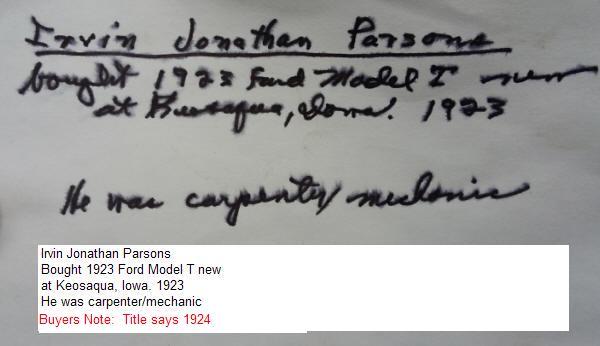 Irvin Jonathan Parsons
bought 1923 Ford Model T new
at Keosaqua, Iowa. 1923
He was carpenter/mechanic
Irvin Jonathan Parsons
Bought 1923 Ford Model T new
at Keosaqua, Iowa. 1923
He was carpenter/mechanic
Buyers Note: Title says 1924